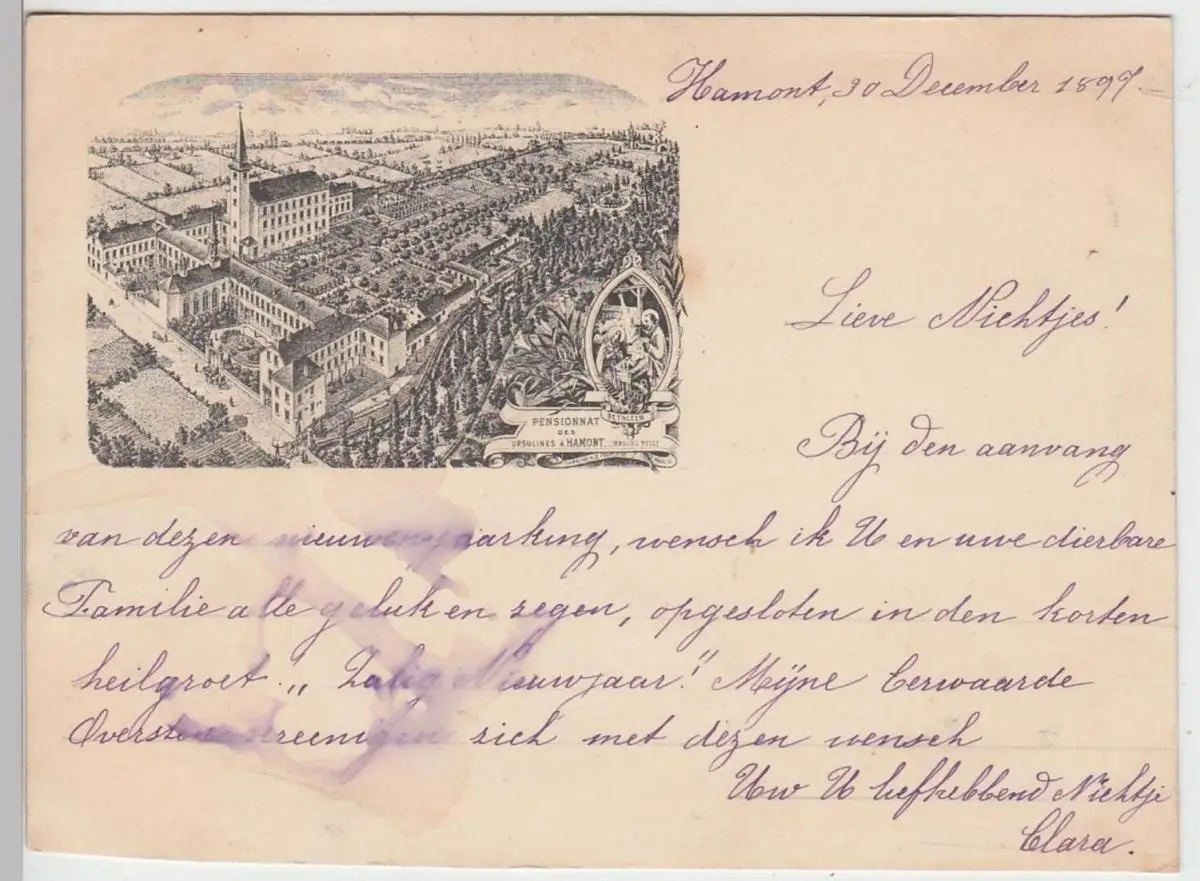 Hamont, 30 December 1897
Lieve Nichtjes!
Bij den aanvang
van dezen nieuwen jaarkring, wensch ik U en uwe dierbare
Familie alle geluk en zegen, opgesloten in den korten
heilgroet. „Zalig Nieuwjaar!" Mijne Eerwaarde
Oversten vereenigen zich met dezen wensch
Uw U liefhebbend Nichtje
Clara.
BETHLEEM
PENSIONNAT
DES
URSULINES À HAMONT